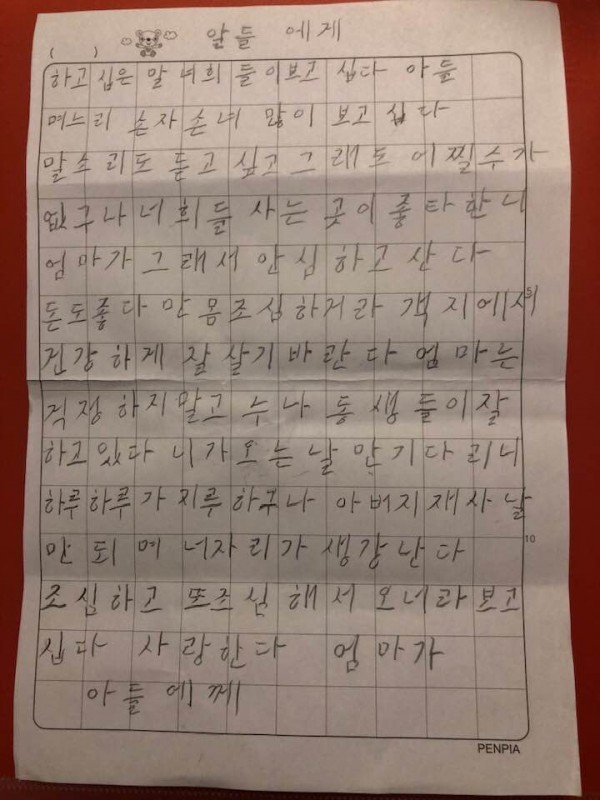 ( ) 알들 에게
하고 십은 말 너희 들 이보고 십다 아들
며느리 손자 손녀 많이 보고 십다
말소리도 듣고 싶고 그래도 어찔수가
없구나 너희들 사는 곳이 좋타한니
엄마가 그래서 안심하고 산다
돈도좋다 만 몸조심하거라 객지에서
5
건강하게 잘살기 바란다 엄마는
걱정하지말고 누나 동생들이잘
하고있다 니가오는날 만기다리니
하루하루가 지루하구나 아버지재사날
10
만 되며 너자리가 생강난다
조심하고 또조심해서 오너라 보고
십다 사랑한다 엄마가
아들에께
PENPIA